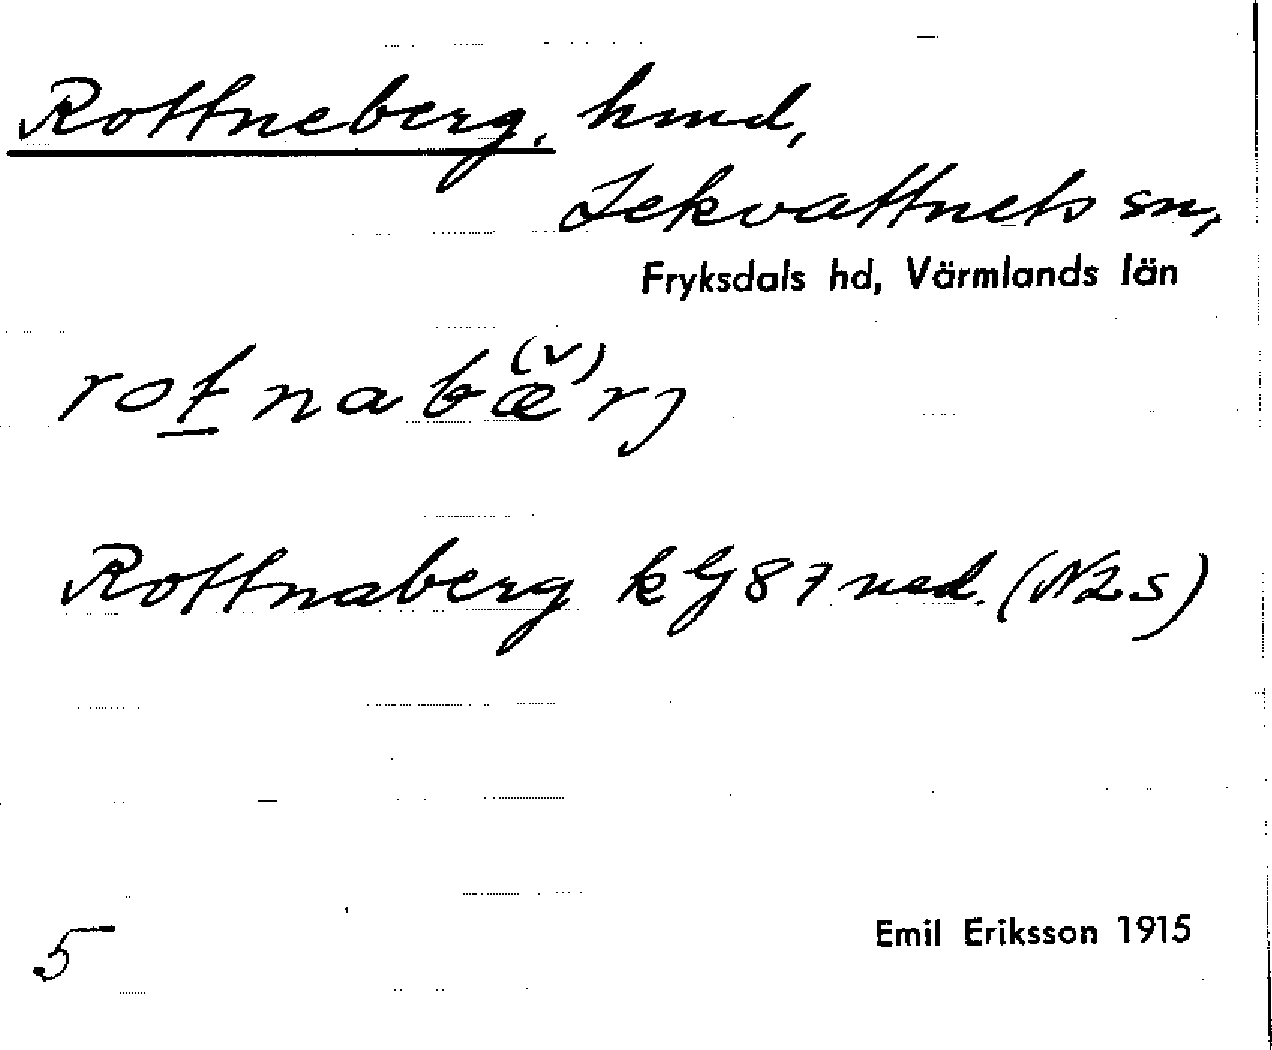 Rottneberg, hmd,
Lekvattnets sn,
Fryksdals hd, Värmlands län
rotnabæ(v)rj
Rottnaberg k G 87 ned. (N2s)
Emil Eriksson 1915
5